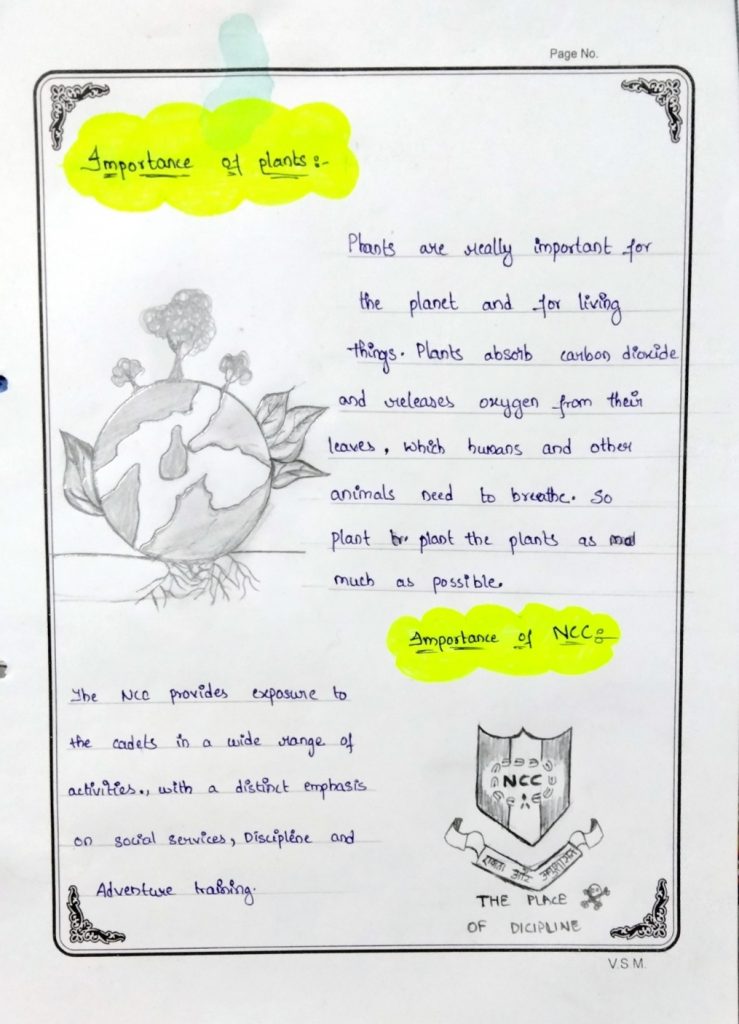 Page No.
Importance of plants :-
Plants are really important for
the planet and for living
things. Plants absorb carbon dioxide
and releases oxygen from their
leaves, which humans and other
animals need to breathe. So
plant plant the plants as
much as possible.
Importance of NCC :-
The NCC provides exposure to
the cadets in a wide range of
activities., with a distinct emphasis
on social services, Discipline and
Adventure training.
NCC
एकता और अनुशासन
THE PLACE
OF DICIPLINE
V.S.M.